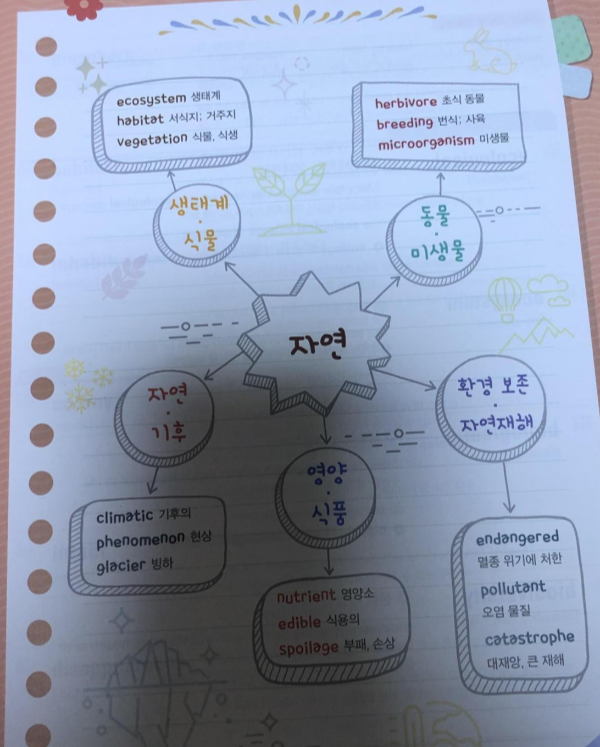 ecosystem 생태계
habitat 서식지; 거주지
vegetation 식물, 식생
herbivore 초식 동물
breeding 번식; 사육
microorganism 미생물
생태계
·
식물
동물
·
미생물
자연
자연
·
기후
환경 보존
·
자연재해
영양
·
식품
climatic 기후의
phenomenon 현상
glacier 빙하
nutrient 영양소
edible 식용의
spoilage 부패, 손상
endangered
멸종 위기에 처한
pollutant
오염 물질
catastrophe
대재앙, 큰 재해